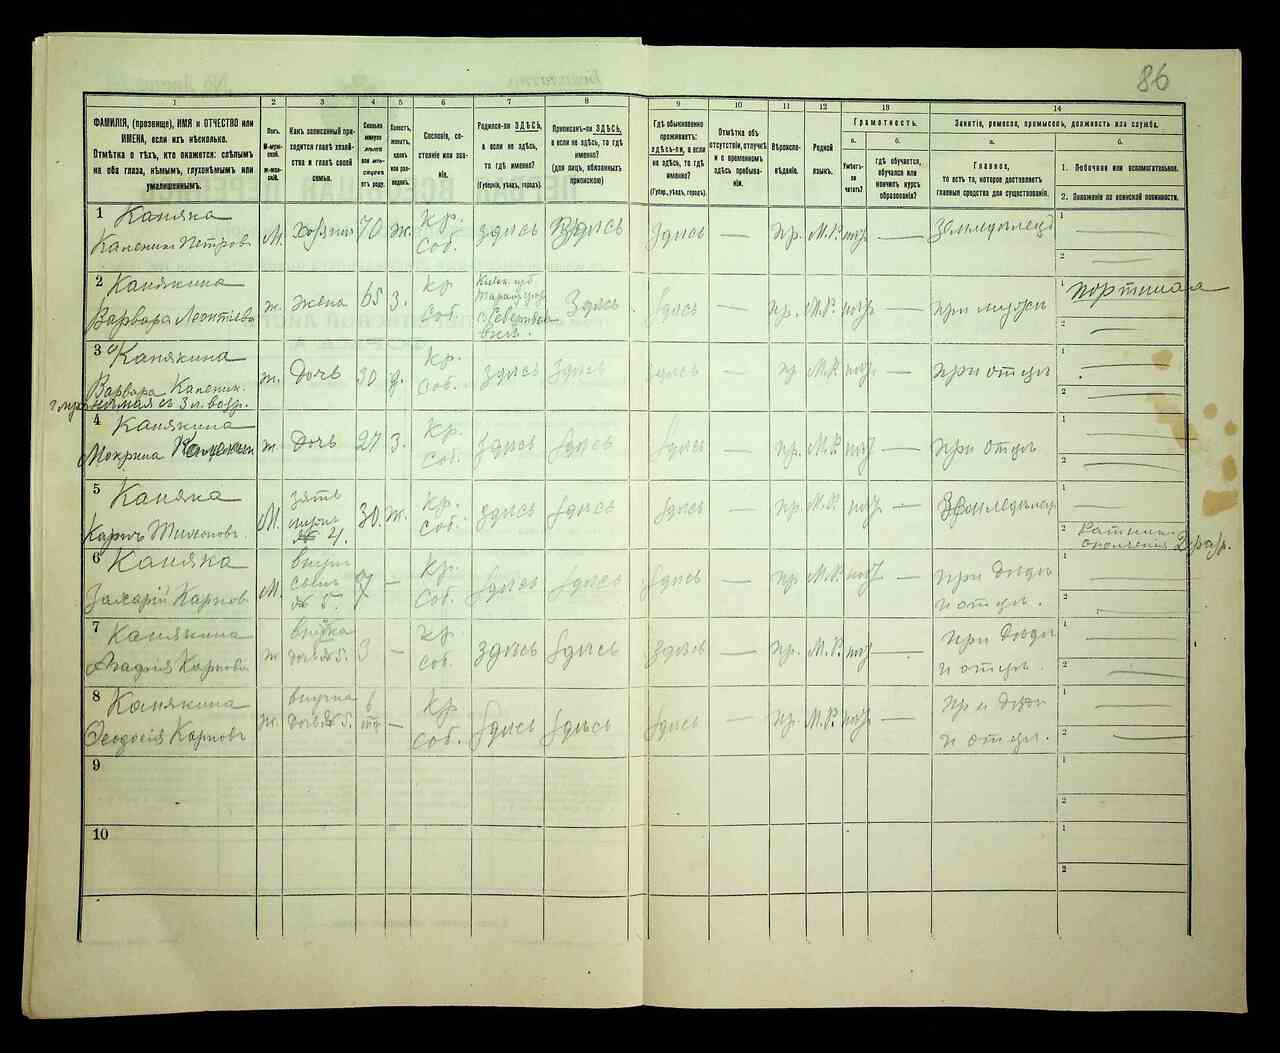 86
1
2
3
4
5
6
7
8
9
10
11
12
13
14
ФАМИЛІЯ, (прозвище), ИМЯ и ОТЧЕСТВО или
ИМЕНА, если ихъ нѣсколько.
Отмѣтка о тѣхъ, кто окажется: слѣпымъ
на оба глаза, нѣмымъ, глухонѣмымъ или
умалишеннымъ.
Полъ.
М-мужской.
ж-женскій.
Какъ записанный приходится
главѣ хозяйства
и главѣ своей
семьи.
Сколько
минуло
лѣтъ
отъ роду.
Холостъ,
женатъ,
вдовъ
или разведенъ.
Сословіе, состояніе
или званіе.
Родился-ли ЗДѢСЬ,
а если не здѣсь,
то гдѣ именно?
(Губернія, уѣздъ, городъ).
Приписанъ-ли ЗДѢСЬ,
а если не здѣсь, то гдѣ
именно?
(для лицъ, обязанныхъ
припискою)
Гдѣ обыкновенно
проживаетъ:
здѣсь-ли, а если
не здѣсь, то гдѣ
именно?
(Губер., уѣздъ, городъ).
Отмѣтка объ
отсутствіи, отлучкѣ
и о временномъ
здѣсь пребываніи.
Вѣроисповѣданіе.
Родной
языкъ.
Грамотность.
а.
Умѣетъ-ли
читать?
б.
гдѣ обучается,
обучался или
кончилъ курсъ
образованія?
Занятіе, ремесло, промыселъ, должность или служба.
а.
Главное,
то есть то, которое доставляетъ
главныя средства для существованія.
б.
1. Побочное или вспомогательное.
2. Положеніе по воинской повинности.
1 Каняка
Каленикъ Петровъ М. хозяинъ 70 ж. Кр. Соб. здѣсь здѣсь здѣсь — пр. М.Р. — 
1 —
2 —
2 Канякина
Варвара Леонтіева ж. жена 65 з. кр. Соб. здѣсь здѣсь — пр. М.Р. — при мужѣ
1
2 —
3 Канякина
Варвара Каленик. ж. Дочь 30 д. Кр. Соб. здѣсь здѣсь здѣсь — пр М.Р. — при отцѣ
1 —
2 —
4 Канякина
Мокрина ж Дочь 27 з. Кр. Соб. здѣсь здѣсь здѣсь — пр. М.Р. — при отцѣ
1 —
2 —
5 Каняка
Карпъ М. зять 30. ж. Кр. Соб. здѣсь здѣсь здѣсь — пр. М.Р. —
1 —
2 Ратникъ
ополченія 2 разр.
6 Каняка
Захарій Карповъ М. сынъ № 5. 7 — Кр. Соб. здѣсь здѣсь здѣсь — пр М.Р. — при дѣдѣ
и отцѣ.
1 —
2 —
7 Канякина
Карпова ж внучка
дочь № 5. 3 — Кр. Соб. здѣсь здѣсь здѣсь — пр. М.Р. — при дѣдѣ
и отцѣ.
1 —
2 —
8 Канякина
Ѳеодосія Карповъ ж. внучка
дочь № 5. 6 — Кр Соб. здѣсь здѣсь здѣсь — пр. М.Р. — при дѣдѣ
и отцѣ.
1 —
2 —
9
1
2
10
1
2